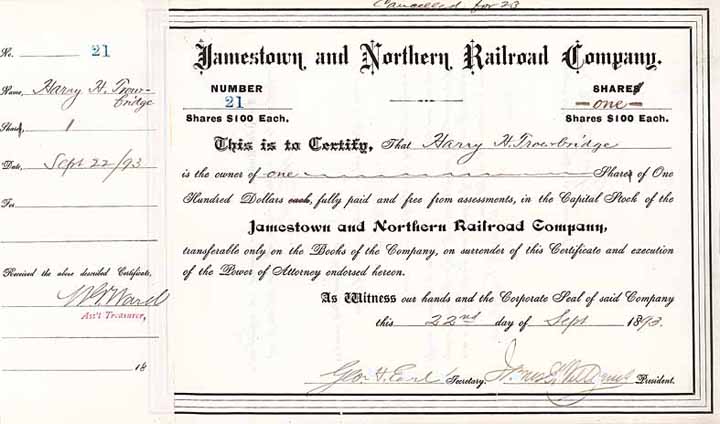 Cancelled for 23
No. 21
Name, Harry H. Trow-
bridge
Share, 1
Date, Sept 22/93
For
Received the above described Certificate,
Ass't Treasurer,
18
Jamestown and Northern Railroad Company.
NUMBER
21
Shares $100 Each.
SHARE
one
Shares $100 Each.
This is to Certify, That Harry H. Trowbridge
is the owner of one Share of One
Hundred Dollars each, fully paid and free from assessments, in the Capital Stock of the
Jamestown and Northern Railroad Company,
transferable only on the Books of the Company, on surrender of this Certificate and execution
of the Power of Attorney endorsed hereon.
As Witness our hands and the Corporate Seal of said Company
this 22nd day of Sept 1893.
Geo. H. Earl Secretary. President.